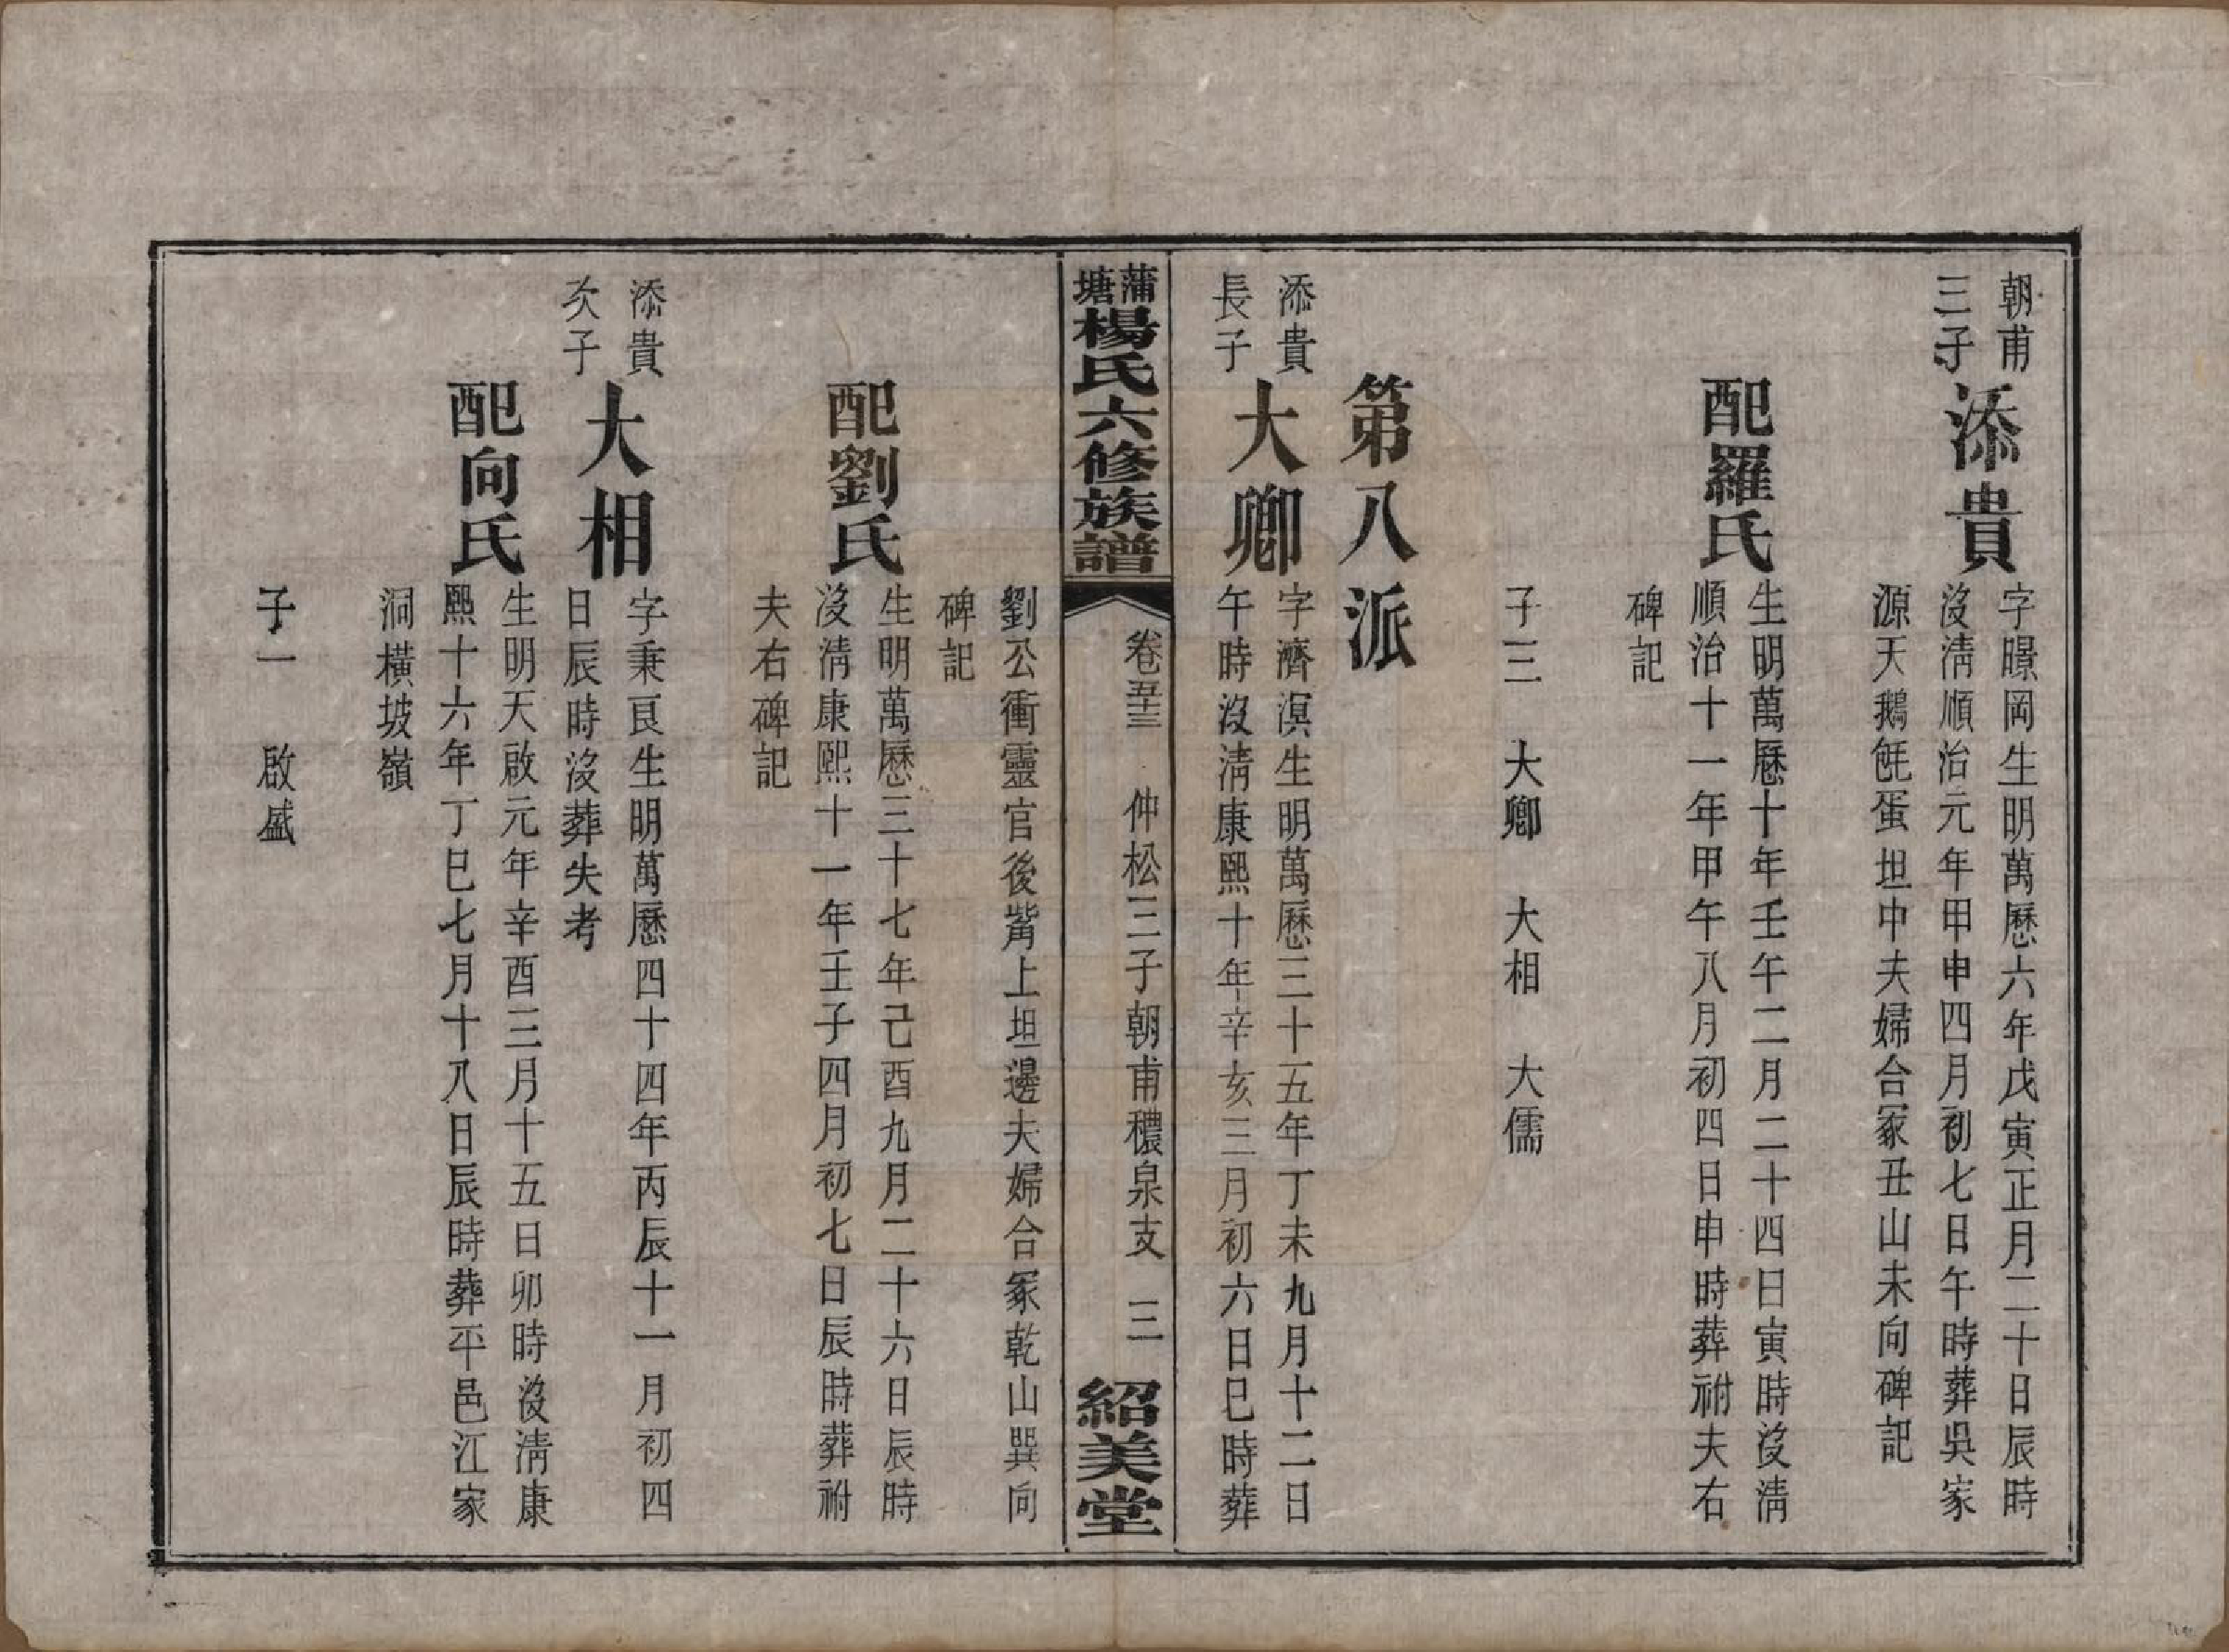 朝甫
三子
添貴
字暻岡生明萬曆六年戊寅正月二十日辰時
沒淸順治元年甲申四月初七日午時葬吳家
源天鵝毻蛋坦中夫婦合冢丑山未向碑記
配羅氏
生明萬曆十年壬午二月二十四日寅時沒淸
順治十一年甲午八月初四日申時葬祔夫右
碑記
子三　大卿　大相　大儒
第八派
添貴
長子
大卿
字濟溟生明萬曆三十五年丁未九月十二日
午時沒淸康熙十年辛亥三月初六日巳時葬
蒲塘楊氏六修族譜
卷五十三　仲松三子朝甫穠泉支　三
紹美堂
劉公衝靈官後嘴上坦邊夫婦合冢乾山巽向
碑記
配劉氏
生明萬曆三十七年己酉九月二十六日辰時
沒淸康熙十一年壬子四月初七日辰時葬祔
夫右碑記
添貴
次子
大相
字秉良生明萬曆四十四年丙辰十一月初四
日辰時沒葬失考
配向氏
生明天啟元年辛酉三月十五日卯時沒淸康
熙十六年丁巳七月十八日辰時葬平邑江家
洞橫坡嶺
子一　啟盛